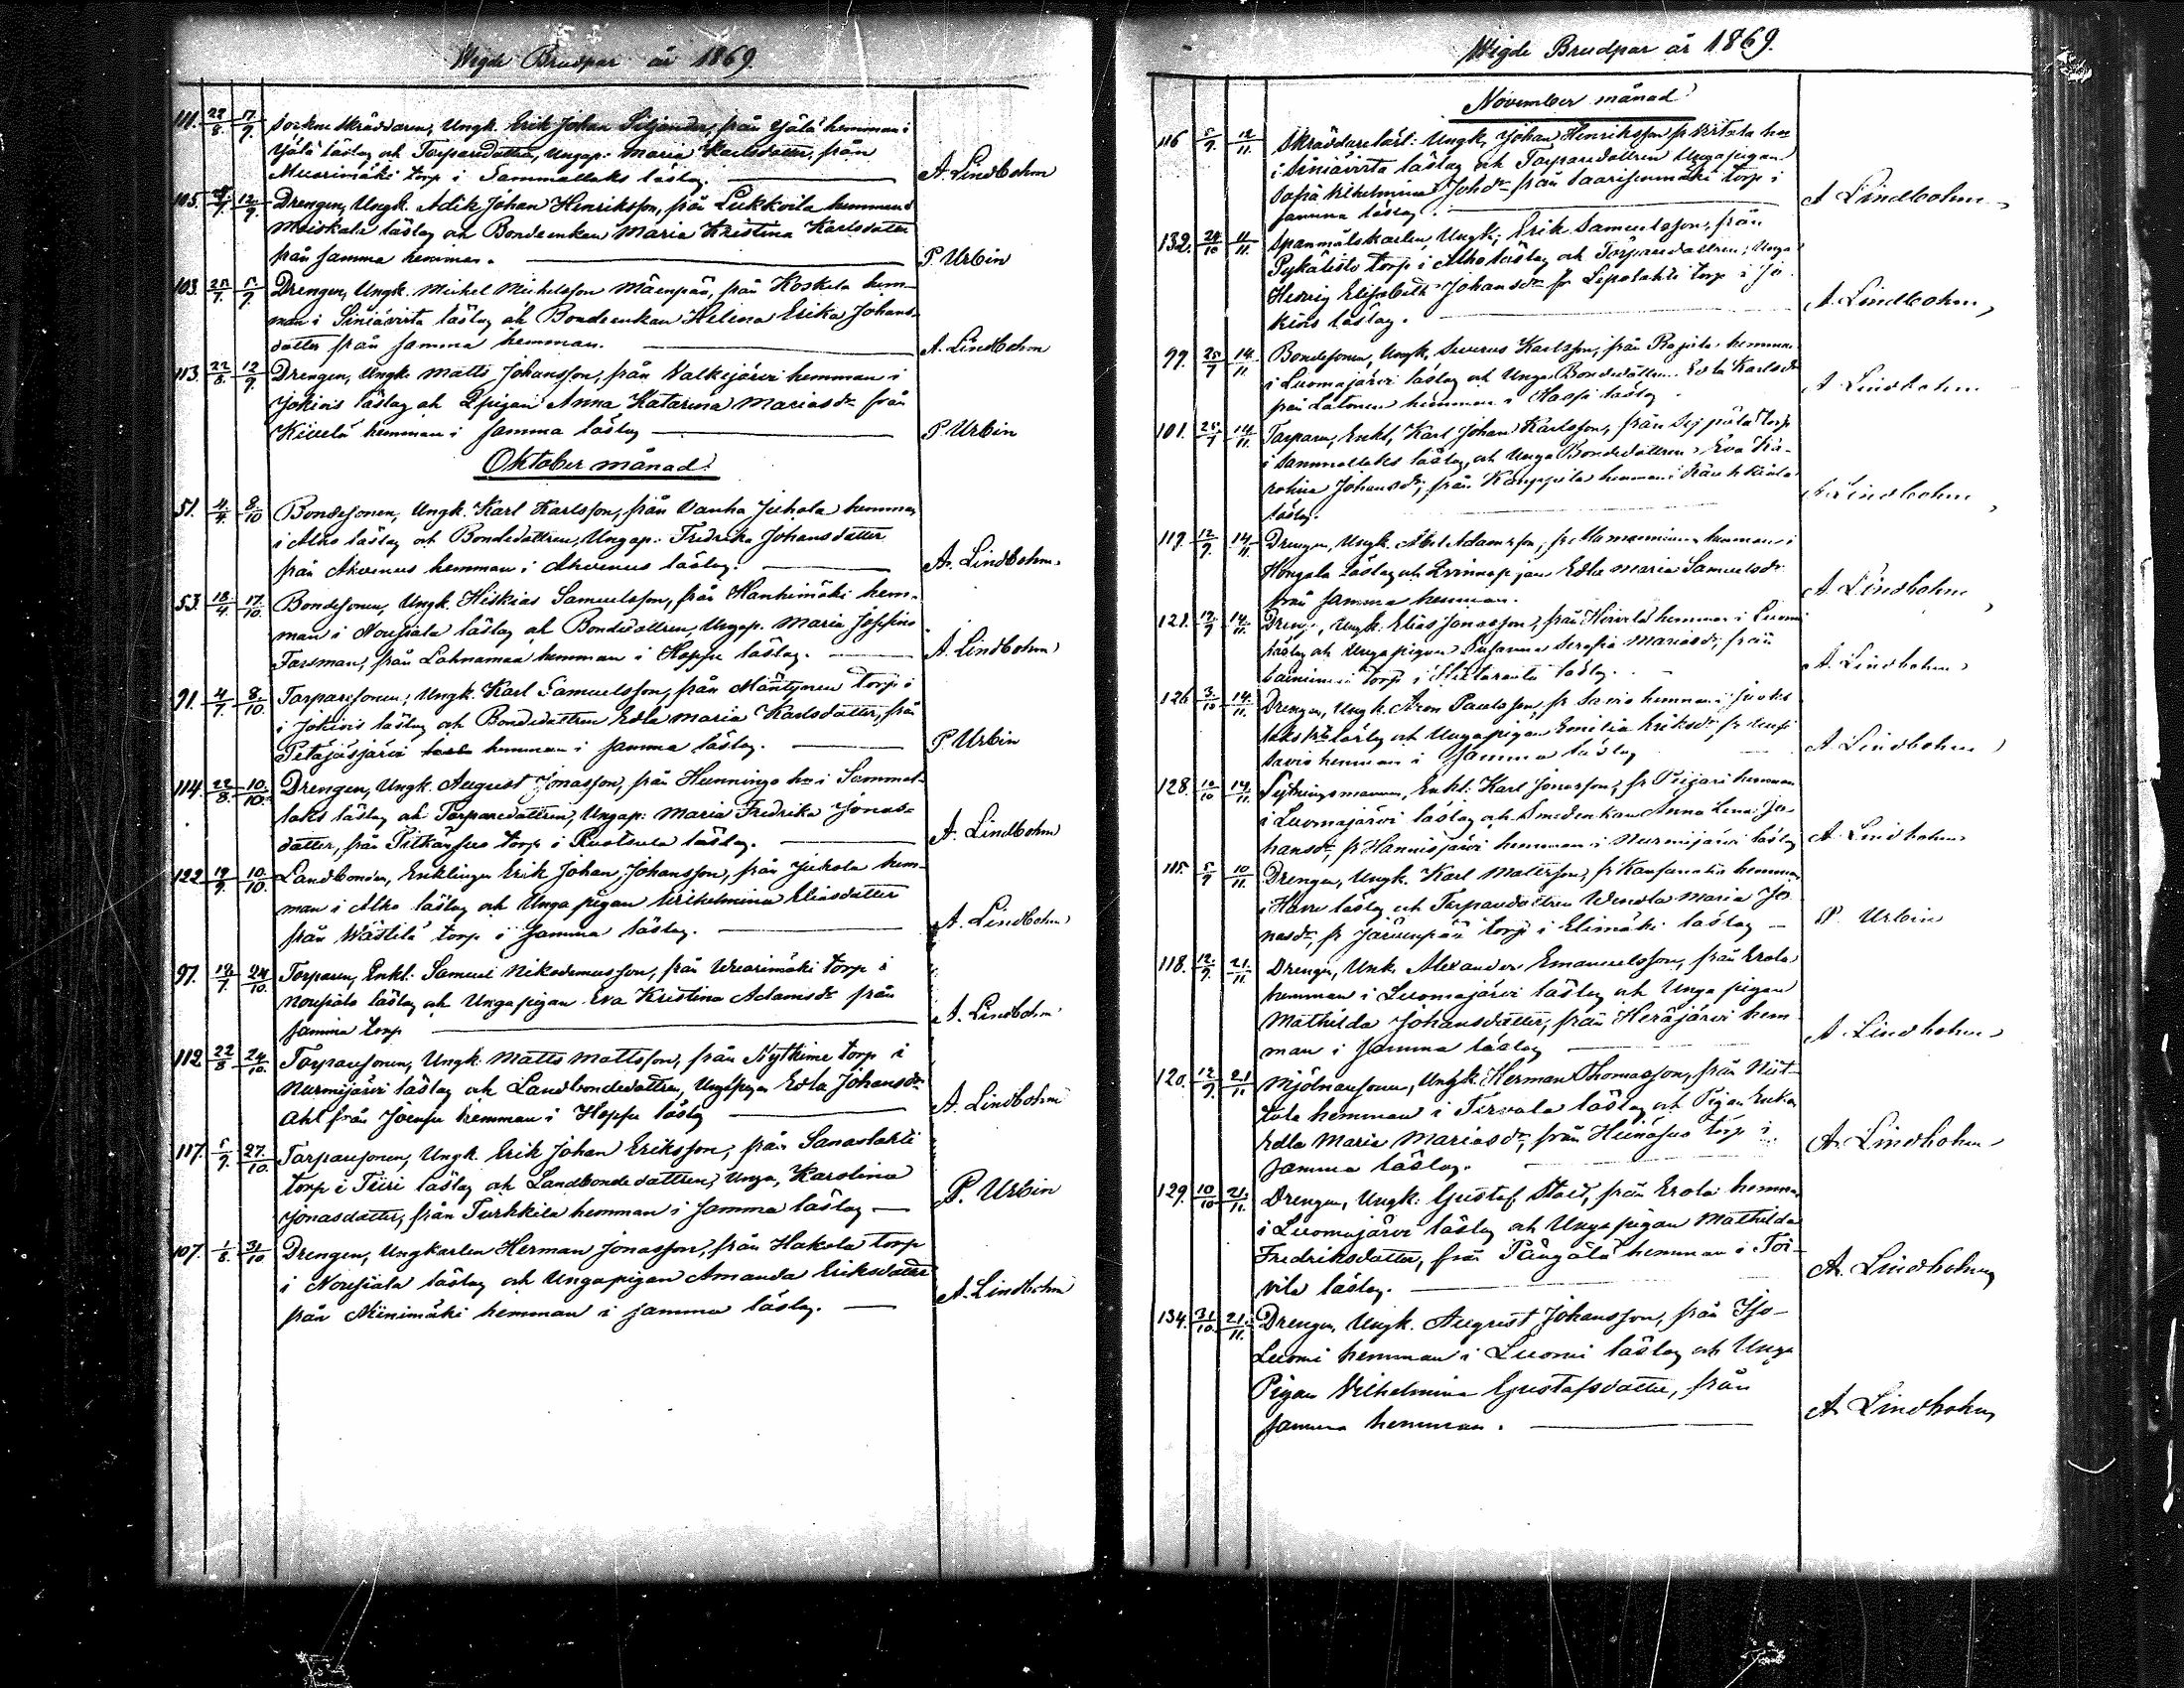 Wigde Brudpar år 1869.
111. 22/8. 17/9. Sockneskräddaren, Ungk. Erik Johan Siljander, från Yjälä hemman i
Yjälä läslag och Torparedottren, Ungap. Maria Karlsdotter, från
Muurimäki torp i Sammallaks läslag. A. Lindbohm
105. 12/9. Drengen, Ungk. Adik Johan Henriksson, från Lukkoila hemman i
Meiskala läslag och Bondeenkan Maria Kristina Karlsdotter
från samma hemman. P. Urbin
103. 25/7. 5/9. Drengen, Ungk. Mickel Michelsson Mäenpää, från Koskela hem-
man i Siniävirta läslag och Bondeenkan Helena Erika Johans-
dotter från samma hemman. A. Lindbohm
113. 22/8. 12/9. Drengen, Ungk. Matts Johansson, från Valkejärvi hemman i
Jokivis läslag och Qpigan Anna Katarina Mariasdr från
Kivelä hemman i samma läslag P Urbin
Oktober månad.
51. 4/4. 8/10 Bondesonen, Ungk. Karl Karlsson, från Vanha Juhola hemman
i Alho läslag och Bondedottren, Ungap. Fredrika Johansdotter
från Ahvenus hemman i Ahvenus läslag. A. Lindbohm
53. 18/4. 17/10. Bondesonen, Ungk. Hiskias Samuelsson, från Hanhimäki hem-
man i Nousiala läslag och Bondedottren, Ungap. Maria Josefina
Forsman, från Lahnamaa hemman i Hoppu läslag. A. Lindbohm
91. 4/7. 8/10. Torparesonen, Ungk. Karl Samuelsson, från Mäntynen torp i
i Jokivis läslag och Bondedottren Edla Maria Karlsdotter, från
Petäjäsjärvi hemman i samma läslag. P Urbin
114. 22/8. 10/10. Drengen, Ungk. August Jonasson, från Hunningo hn i Sammal-
laks läslag och Torparedottren, Ungap. Maria Fredrika Jonas-
dotter, från Pitkänsuo torp i Ruotsula läslag. A. Lindbohm
122 19/9. 10/10. Landbonden, Enklingen Erik Johan Johansson, från Jukola hem-
man i Alho läslag och Unga pigan Wilhelmina Eliasdotter
från Wästilä torp i samma läslag. A. Lindbohm
97. 18/7. 24/10. Torparen, Enkl. Samuel Nikodemusson, från Wuorimäki torp i
Nousiala läslag och Ungapigan Eva Kristina Adamsdr från
samma torp A. Lindbohm
112 22/8 24/10. Torparesonen, Ungk. Matts Mattsson, från Nytkime torp i
Nurmijärvi läslag och Landbondedottren, Ungapigan Edla Johansdr
Ahl från Joensuu hemman i Hoppu läslag A. Lindbohm
117. 5/9. 27/10. Torparesonen, Ungk. Erik Johan Eriksson, från Sanaslahti
torp i Tiiri läslag och Landbondedottren, Unga, Karolina
Jonasdotter, från Turkkila hemman i samma läslag P. Urbin
107. 1/8. 31/10 Drengen, Ungkarlen Herman Jonasson, från Hakola torp
i Nousiala läslag och Ungapigan Amanda Eriksdotter
från Niinimäki hemman i samma läslag. A. Lindbohm
Wigde Brudpar år 1869.
November månad
116 5/9. 12/11. Skräddarelärl. Ungk. Johan Henriksson fr Wirtala hn
i Siniävirta läslag och Torparedottren Ungapigan
Sofia Wilhelmina Johdr från Saarisenmäki torp i
samma läslag. A Lindbohm
132. 24/10 11/11. Spanmålskarlen, Ungk. Erik Samuelsson, från
Pykälistö torp i Alho läslag och Torparedottren, Unga
Hedvig Elisabeth Johansdr fr Lepolahti torp i Jo-
kivis läslag. A. Lindbohm
99. 25/7 14/11. Bondesonen, Ungk. Severus Karlsson, från Rajala hemman
i Luomajärvi läslag och Unga Bondedottren Edla Karlsdr
från Latonen hemman i Hassi läslag A Lindbohm
101. 25/7 14/11. Torparen, Enkl, Karl Johan Karlsson, från Seppälä torp
i Sammallaks läslag, och Unga Bondedottren Eva Ka-
rolina Johansdr, från Kauppila hemman i
läslag. A Lindbohm
119. 12/9. 14/11. Drengen, Ungk. Abel Adamsson, fr hemman i
Hongola läslag och Qvinnspigan Edla Maria Samuelsdr
från samma hemman. A Lindbohm
121. 12/9 14/11. Dreng., Ungk. Elias Jonasson, från Heinilä hemman i Luomi
läslag och Ungapigan Susanna Serafia Mariasdr, från
torp i läslag. A. Lindbohm
126 3/10 14/11. Drengen, Ungk. Aron Paulsson, fr Savio hemman i
läslag och Ungapigan Emilia Eriksdr, fr Uusi
Savio hemman i samma läslag A Lindbohm
128. 10/10 14/11. Sytningsmannen, Enkl. Karl Jonasson, fr Piijari hemman
i Luomajärvi läslag och Smedenkan Anna Lena Jo-
hansdr, fr Hannisjärvi hemman i Nurmijärvi läslag A Lindbohm
115. 5/9 10/11. Drengen, Ungk. Karl Mattsson, fr Kansanaho hemman
i Havu läslag och Torparedottren Wendla Maria Jo-
nasdr, fr Järvenpää torp i Elimäki läslag P. Urbin
118. 12/9. 21/11. Drengen, Unk. Alexander Emanuelsson, från Erola
hemman i Luomajärvi läslag och Unga pigan
Mathilda Johansdotter, från Heräjärvi hem
man i samma läslag A. Lindbohm
120. 12/9. 21/11. Mjölnaresonen, Ungk. Herman Thomasson, från Niit-
tola hemman i Tervala läslag och Pigan Enkan
Edla Maria Mariasdr, från Heinäsuo torp i
samma läslag. A. Lindbohm
129. 10/10 21/11. Drengen, Ungk. Gustaf Stolt, från Erola hemman
i Luomajärvi läslag och Ungapigan Mathilda
Fredriksdotter, från Pängälä hemman i Toi-
vila läslag. A. Lindbohm
134. 31/10. 21/11. Drengen, Ungk. August Johansson, från Iso-
Luomi hemman i Luomi läslag och Unga
Pigan Vilhelmina Gustafsdotter, från
samma hemman. A. Lindbohm